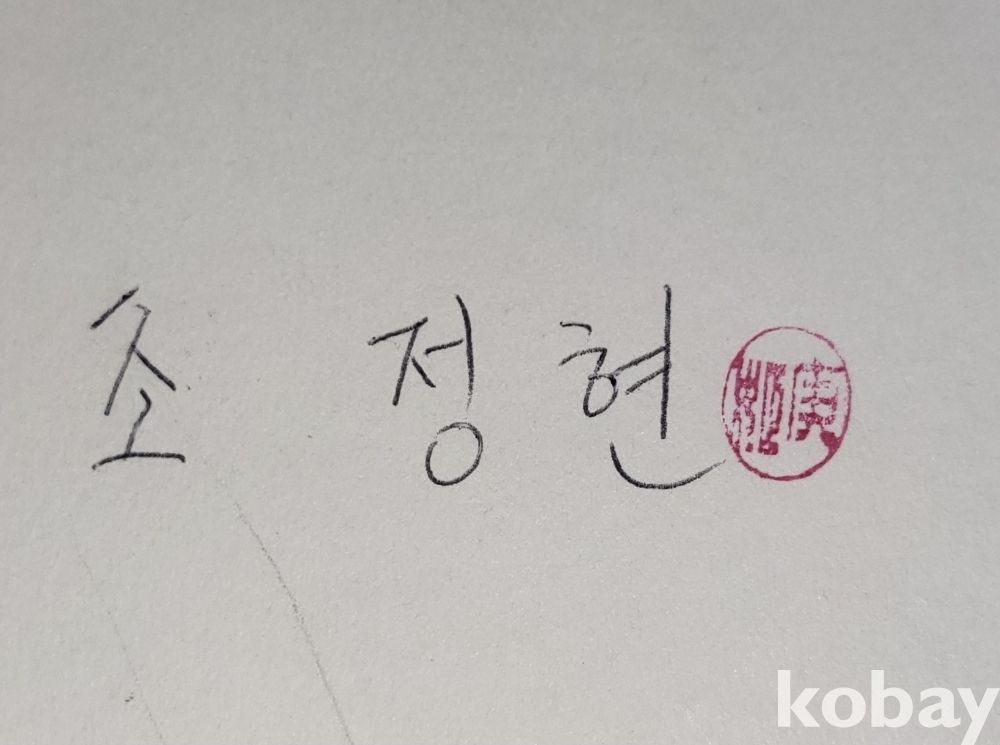 조 정현
kobay